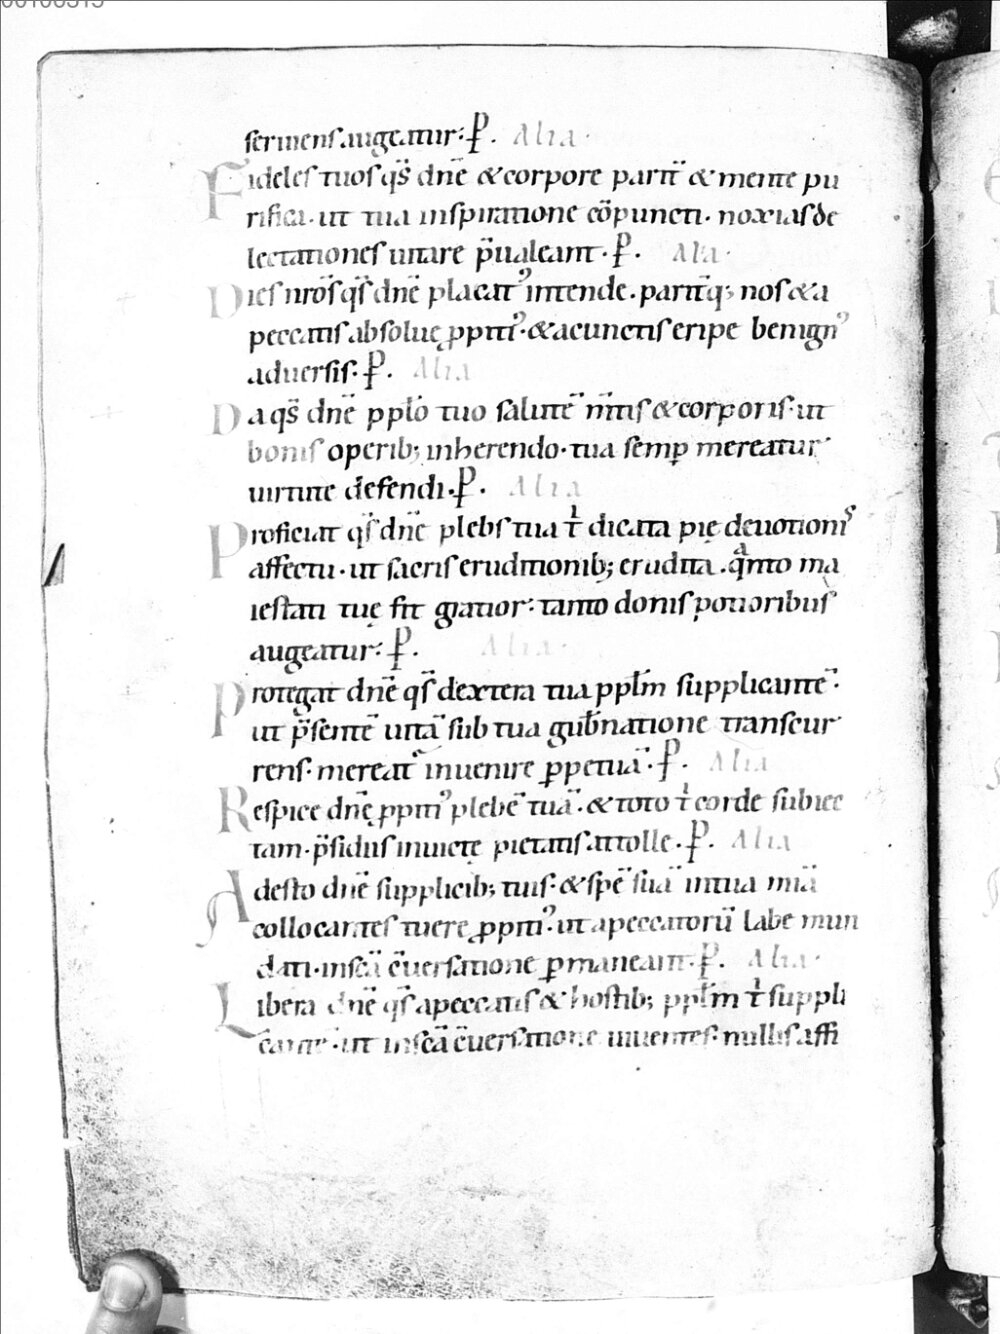 seruiens augeatur: P. Alia·
Fideles tuos qs̄ dn̄e & corpore parit̄ & mente pu
rifica· ut tua inspiratione cō̄puncti· noxias de
lectationes uitare p̄ualeant· P. Ala·
Dies nr̄os qs̄ dn̄e placat᾽ intende· parit̄q; nos & a
peccatis absolue ꝓpiti᾽· & a cunctis eripe benign᾽
aduersis· P. Alia
Da qs̄ dn̄e ppl̄o tuo salutē m̄tis & corporis· ut
bonis operib; inherendo· tua semꝑ mereatur
uirtute defendi· P. Alia
Proficiat qs̄ dn̄e plebs tua t̄ dicata pię deuotionis
affectu· ut sacris eruditionib; erudita· qanto ma
iestati tuę fit gratior: tanto donis potioribus
augeatur: P. Alia·
Protegat dn̄e qs̄ dextera tua ppl̄m supplicantē·
ut p̄sentē uitā sub tua gub̄natione transcur
rens· mereat᾽ inuenire ꝑpetuā· P. Alia
Respice dn̄e ꝓpiti᾽ plebē tuā· & toto t̄ corde subiec
tam· p̄sidiis inuictę pietatis attolle· P. Alia
Adesto dn̄e supplicib; tuis· & spē suā in tua mīa
collocantes tuere ꝓpiti᾽· ut a peccatorū labe mun
dati· in scā c̄uersatione ꝑmaneant· P. Alia·
Libera dn̄e qs̄ a peccatis & hostib; ppl̄m t̄ suppli
cante· ut in scā c̄uersatione uiuentes· nullis affi